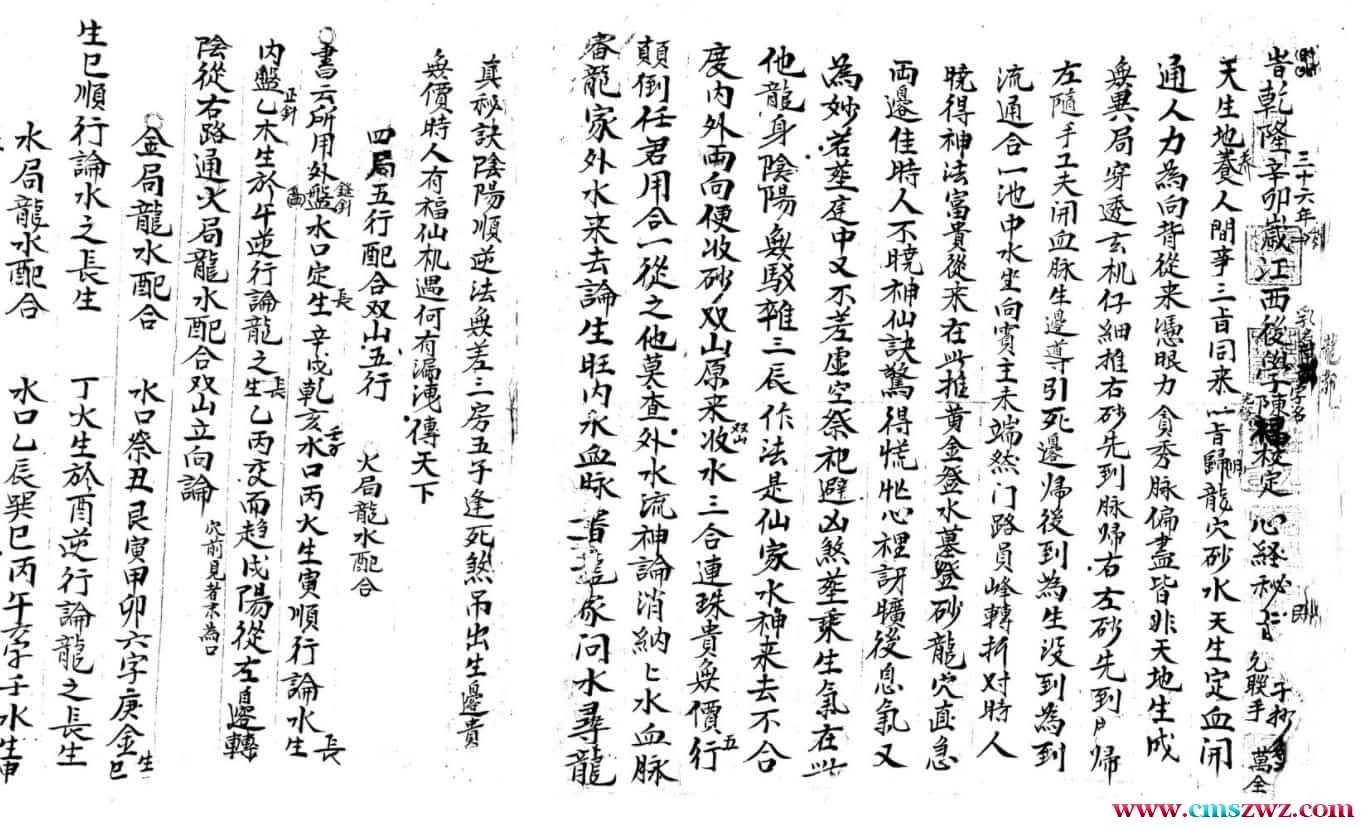 三十六年
旹乾隆辛卯歲江西後學陳福校定 心経秘旨 允聯手 萬全
天生地養人間事三旨同来一旨歸龍穴砂水天生定血開
通人力為向背從来憑眼力貪秀脉偏盡皆非天地生成
無異局穿透玄机仔細推右砂先到脉歸右左砂先到歸
左隨手工夫開血脉生邊導引死邊归後到為生没到為到
流通合一池中水坐向賓主未端然门路員峰轉折对時人
曉得神法富貴從来在此推黄金登水墓登砂龍穴直急
両邊佳時人不曉神仙訣驚得慌忙心裡訝曠後息氣又
為妙若塟庭中又不差虚空祭祀避凶煞塟乗生氣在此
他龍身陰陽無駁雜三辰作法是仙家水神来去不合
度内外両向便收砂双山原来收水三合連珠貴無價五行
顛倒任君用合一從之他莫查外水流神論消納七水血脉
審龍家外水来去論生旺内水血脉皆龍家问水尋龍
真秘訣陰陽順逆法無差二房五子逢死煞吊出生邊貴
無價時人有福仙机遇何有漏洩傳天下
四局五行配合双山五行 火局龍水配合
書云所用外盤縫針水口定生長辛戌乾亥壬子水口丙火生寅順行論水生長
内盤正針乙木生於午逆行論龍之生長乙丙交而趋戌陽從左邊轉
陰從右路通火局龍水配合双山立向論 穴前見者末為口
金局龍水配合 水口癸丑艮寅甲卯六字庚金生巳
生巳順行論水之長生 丁火生於酉逆行論龍之長生
水局龍水配合 水口乙辰巽巳丙午六字壬水生申
www.cmszwz.com